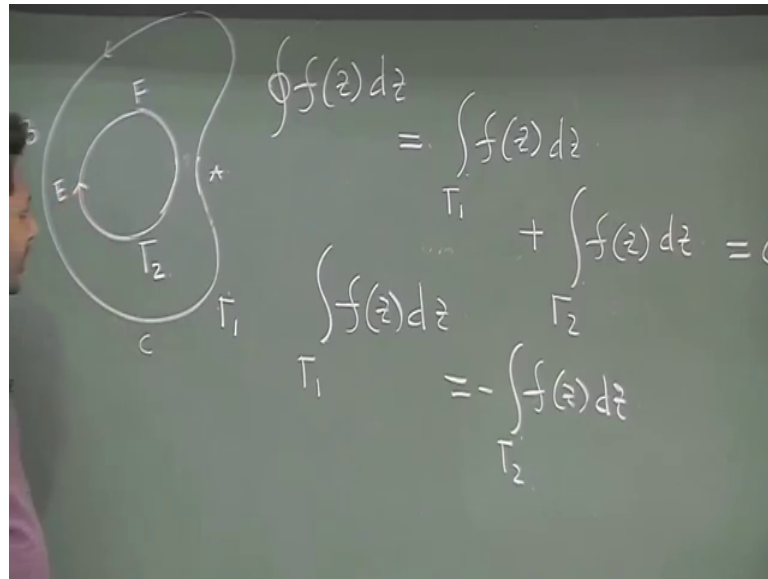 F
B
E
A
Γ₂
Γ₁
C
∮f(z)dz
= ∫_Γ₁ f(z)dz
+ ∫_Γ₂ f(z)dz =
∫_Γ₁ f(z)dz
= - ∫_Γ₂ f(z)dz